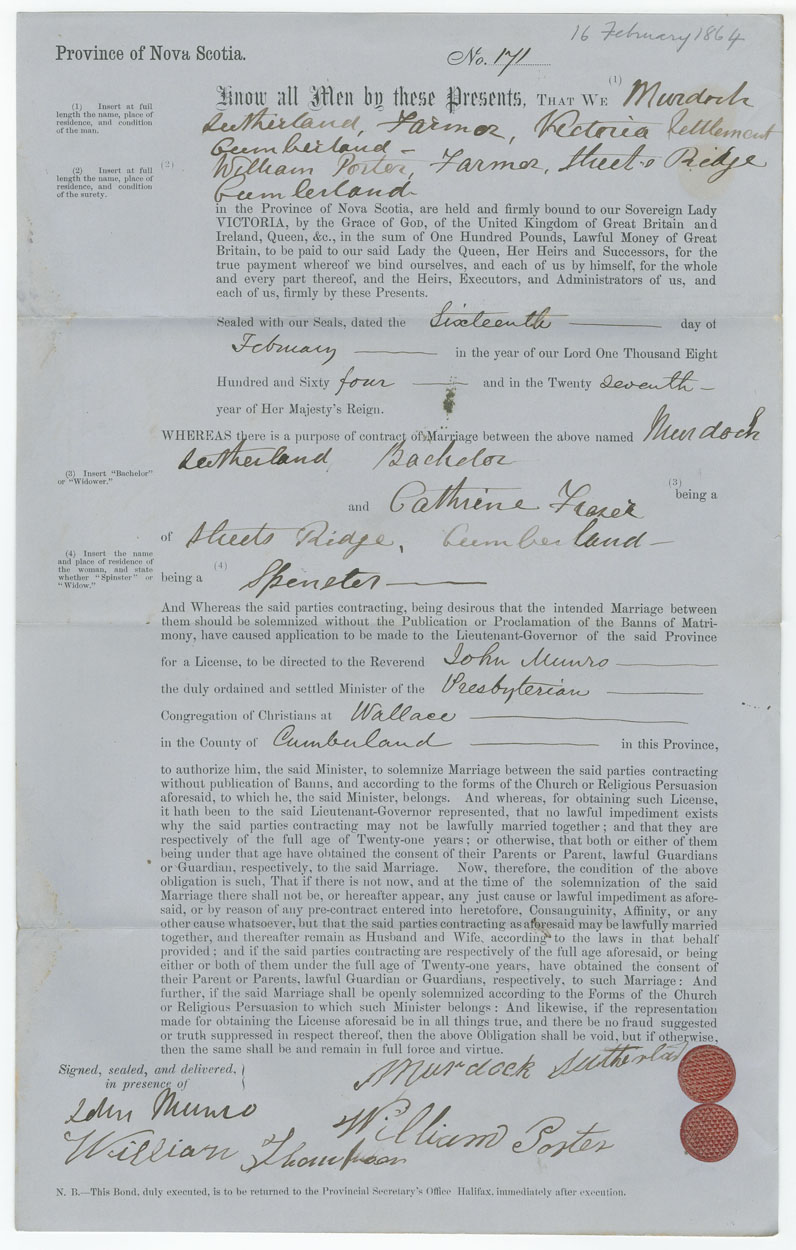 16 February 1864
Province of Nova Scotia.
No. 171
(1) Insert at full
length the name, place of
residence, and condition
of the man.
Know all Men by these Presents, THAT WE (1) Murdock
Sutherland, Farmer, Victoria Settlement
Cumberland -
(2) Insert at full
length the name, place of
residence, and condition
of the surety.
(2) William Porter, Farmer, Streets Ridge
Cumberland
in the Province of Nova Scotia, are held and firmly bound to our Sovereign Lady
VICTORIA, by the Grace of GOD, of the United Kingdom of Great Britain and
Ireland, Queen, &c., in the sum of One Hundred Pounds, Lawful Money of Great
Britain, to be paid to our said Lady the Queen, Her Heirs and Successors, for the
true payment whereof we bind ourselves, and each of us by himself, for the whole
and every part thereof, and the Heirs, Executors, and Administrators of us, and
each of us, firmly by these Presents.
Sealed with our Seals, dated the Sixteenth day of
February in the year of our Lord One Thousand Eight
Hundred and Sixty four and in the Twenty seventh -
year of Her Majesty's Reign.
WHEREAS there is a purpose of contract of Marriage between the above named Murdock
Sutherland Bachelor
(3) Insert "Bachelor"
or "Widower."
(3) being a
and Cathrine Fraser
of Streets Ridge, Cumberland -
(4) Insert the name
and place of residence of
the woman, and state
whether "Spinster" or
"Widow."
being a (4) Spinster
And Whereas the said parties contracting, being desirous that the intended Marriage between
them should be solemnized without the Publication or Proclamation of the Banns of Matri-
mony, have caused application to be made to the Lieutenant-Governor of the said Province
for a License, to be directed to the Reverend John Munro
the duly ordained and settled Minister of the Presbyterian
Congregation of Christians at Wallace
in the County of Cumberland in this Province,
to authorize him, the said Minister, to solemnize Marriage between the said parties contracting
without publication of Banns, and according to the forms of the Church or Religious Persuasion
aforesaid, to which he, the said Minister, belongs. And whereas, for obtaining such License,
it hath been to the said Lieutenant-Governor represented, that no lawful impediment exists
why the said parties contracting may not be lawfully married together; and that they are
respectively of the full age of Twenty-one years; or otherwise, that both or either of them
being under that age have obtained the consent of their Parents or Parent, lawful Guardians
or Guardian, respectively, to the said Marriage. Now, therefore, the condition of the above
obligation is such, That if there is not now, and at the time of the solemnization of the said
Marriage there shall not be, or hereafter appear, any just cause or lawful impediment as afore-
said, or by reason of any pre-contract entered into heretofore, Consanguinity, Affinity, or any
other cause whatsoever, but that the said parties contracting as aforesaid may be lawfully married
together, and thereafter remain as Husband and Wife, according to the laws in that behalf
provided; and if the said parties contracting are respectively of the full age aforesaid, or being
either or both of them under the full age of Twenty-one years, have obtained the consent of
their Parent or Parents, lawful Guardian or Guardians, respectively, to such Marriage: And
further, if the said Marriage shall be openly solemnized according to the Forms of the Church
or Religious Persuasion to which such Minister belongs: And likewise, if the representation
made for obtaining the License aforesaid be in all things true, and there be no fraud suggested
or truth suppressed in respect thereof, then the above Obligation shall be void, but if otherwise,
then the same shall be and remain in full force and virtue.
Signed, sealed, and delivered,
in presence of
Murdock Sutherland
John Munro
William Porter
William Thompson
N. B.—This Bond, duly executed, is to be returned to the Provincial Secretary's Office Halifax, immediately after execution.